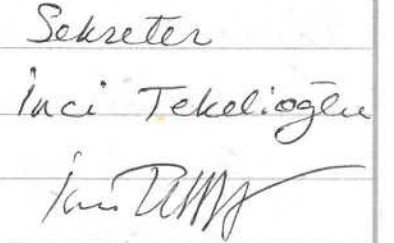 Sekreter
İnci Tekelioğlu